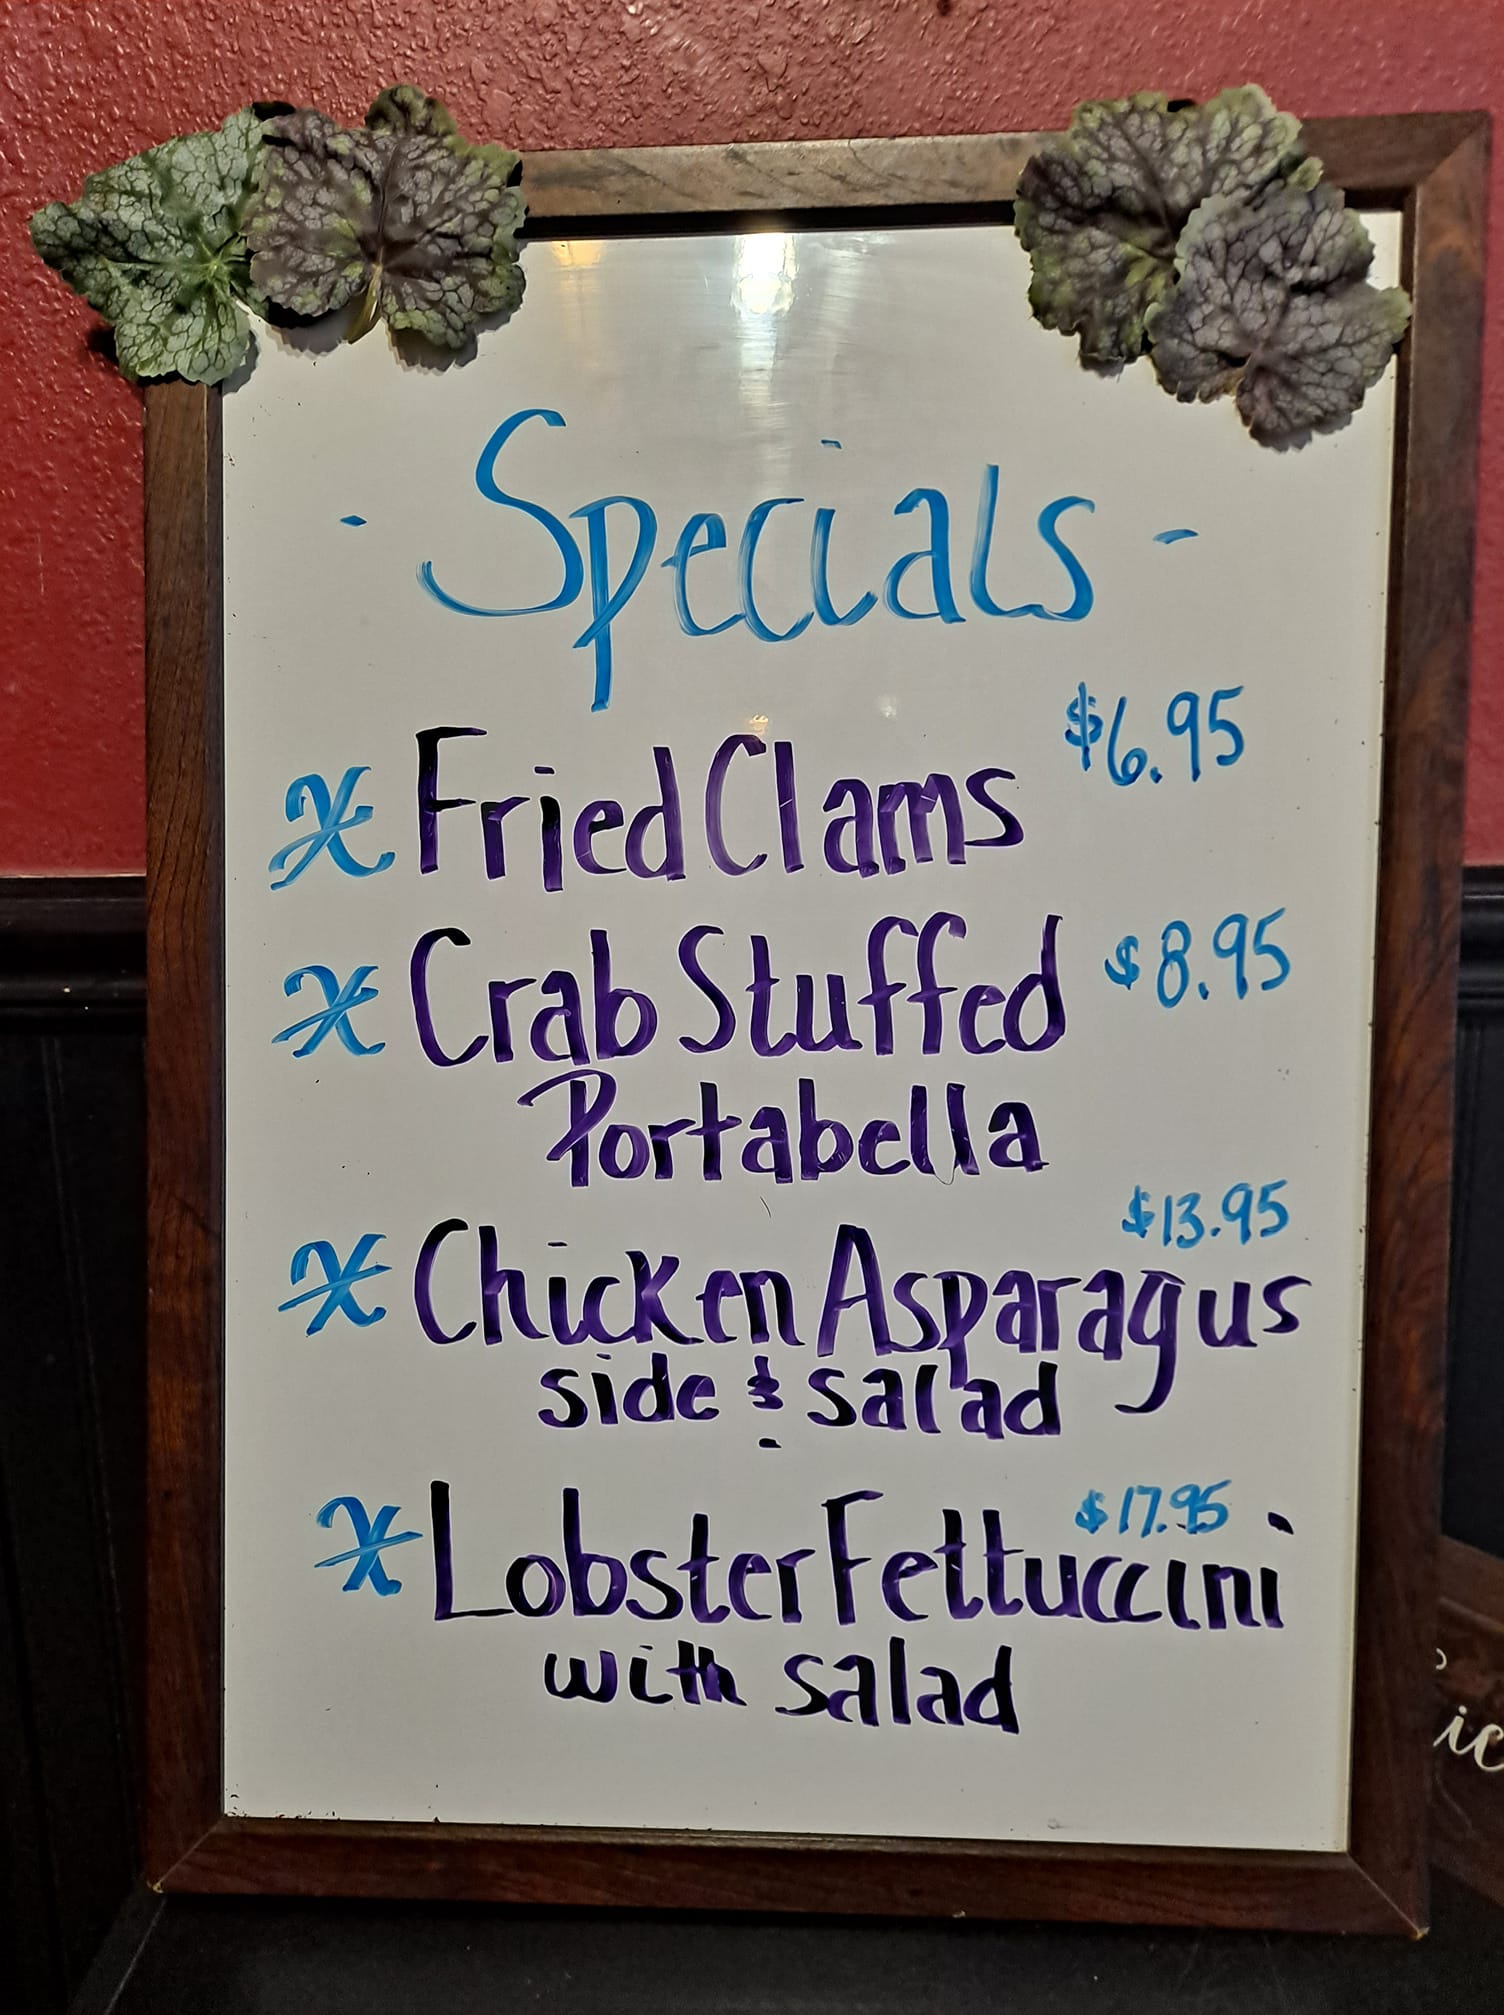 - Specials -
* Fried Clams $6.95
* Crab Stuffed $8.95
Portabella
$13.95
* Chicken Asparagus
side & salad
$17.95
* Lobster Fettuccini
with salad